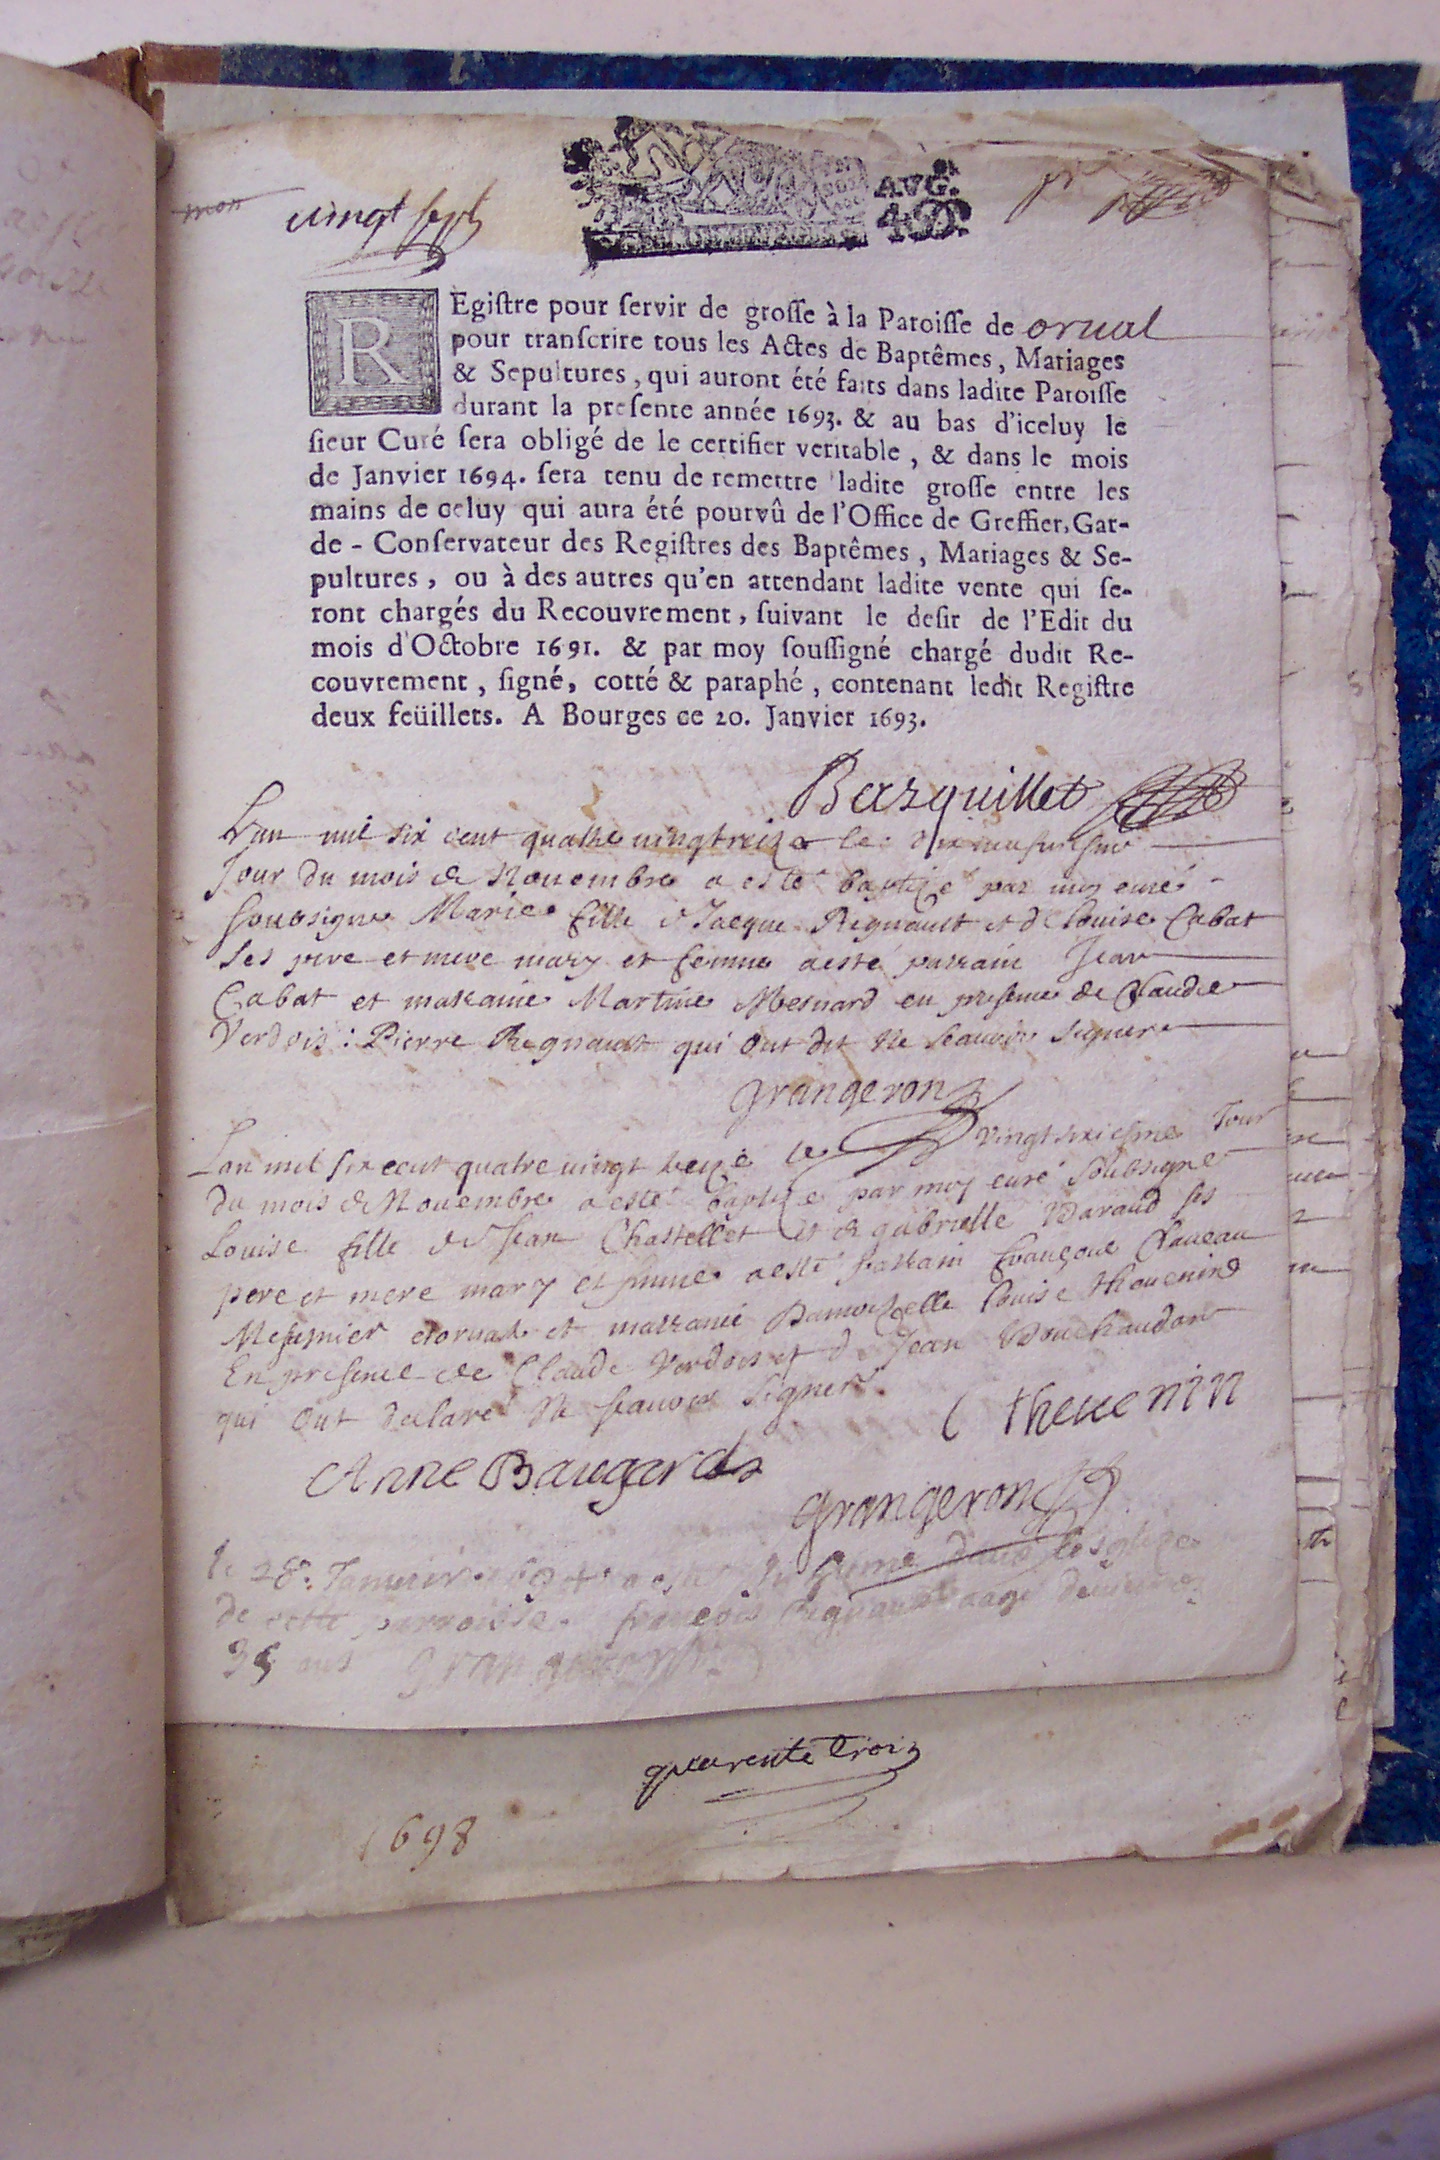 mon
vingt sept
AVG.
REgiſtre pour ſervir de groſſe à la Paroiſſe de orual
pour tranſcrire tous les Actes de Baptêmes, Mariages
& Sepultures, qui auront été faits dans ladite Paroiſſe
durant la preſente année 1693. & au bas d'iceluy le
ſieur Curé ſera obligé de le certifier veritable, & dans le mois
de Janvier 1694. ſera tenu de remettre ladite groſſe entre les
mains de celuy qui aura été pourvû de l'Office de Greffier, Gar-
de-Conſervateur des Regiſtres des Baptêmes, Mariages & Se-
pultures, ou à des autres qu'en attendant ladite vente qui ſe-
ront chargés du Recouvrement, ſuivant le deſir de l'Edit du
mois d'Octobre 1691. & par moy ſouſſigné chargé dudit Re-
couvrement, ſigné, cotté & paraphé, contenant ledit Regiſtre
deux feüillets. A Bourges ce 20. Janvier 1693.
Bazquillet
Lan mil six cent quatre vingt treize le dix neufuiesme
Jour du mois de Nouembre a esté baptize par moy curé
soubsigne Marie fille de Jacque Regnault et de Louise Cabat
ses pere et mere mary et femme a esté parrain Jean
Cabat et marraine Martine Mesnard en presence de Claude
Verdois: Pierre Regnault qui ont dit ne scauoir signer
Grangeron
Lan mil six cent quatre vingt treize le vingt sixiesme Jour
du mois de Nouembre a esté baptize par moy curé soubsigne
Louise fille de Jean Chastellet et de gabrielle Baraud ses
pere et mere mary et femme a esté parrain françois Claueau
Mesusnier dorual et marraine Damoizelle Louise theuenin
En presence de Claude Verdois et de Jean Bouchaudon
qui ont declaré ne scauoir signer.
L theuenin
Anne Baugards
Grangeron
le 28e. Januier a esté dans lesglize
de cette parroisse françois Regnault aagé denuiron
35 ans grangeron
quarente trois
1698